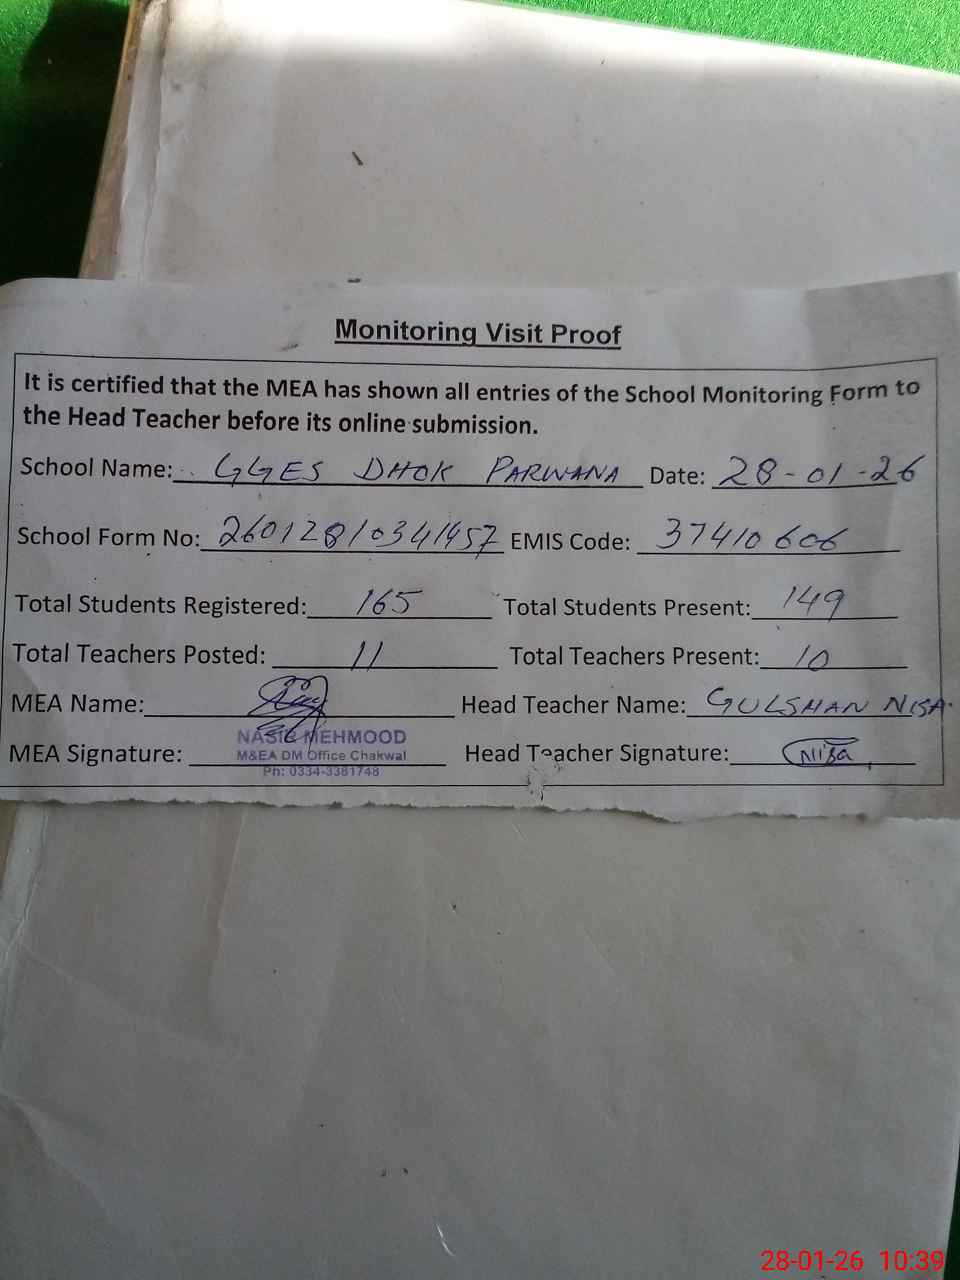 Monitoring Visit Proof
It is certified that the MEA has shown all entries of the School Monitoring Form to
the Head Teacher before its online submission.
School Name: GGES DHOK PARWANA Date: 28-01-26
School Form No: 26012810341457 EMIS Code: 37410606
Total Students Registered: 165 Total Students Present: 149
Total Teachers Posted: 11 Total Teachers Present: 10
MEA Name: Head Teacher Name: GULSHAN NISA.
NASIR MEHMOOD
MEA Signature: M&EA DM Office Chakwal Head Teacher Signature: Nisa
Ph: 0334-3381748
28-01-26 10:39